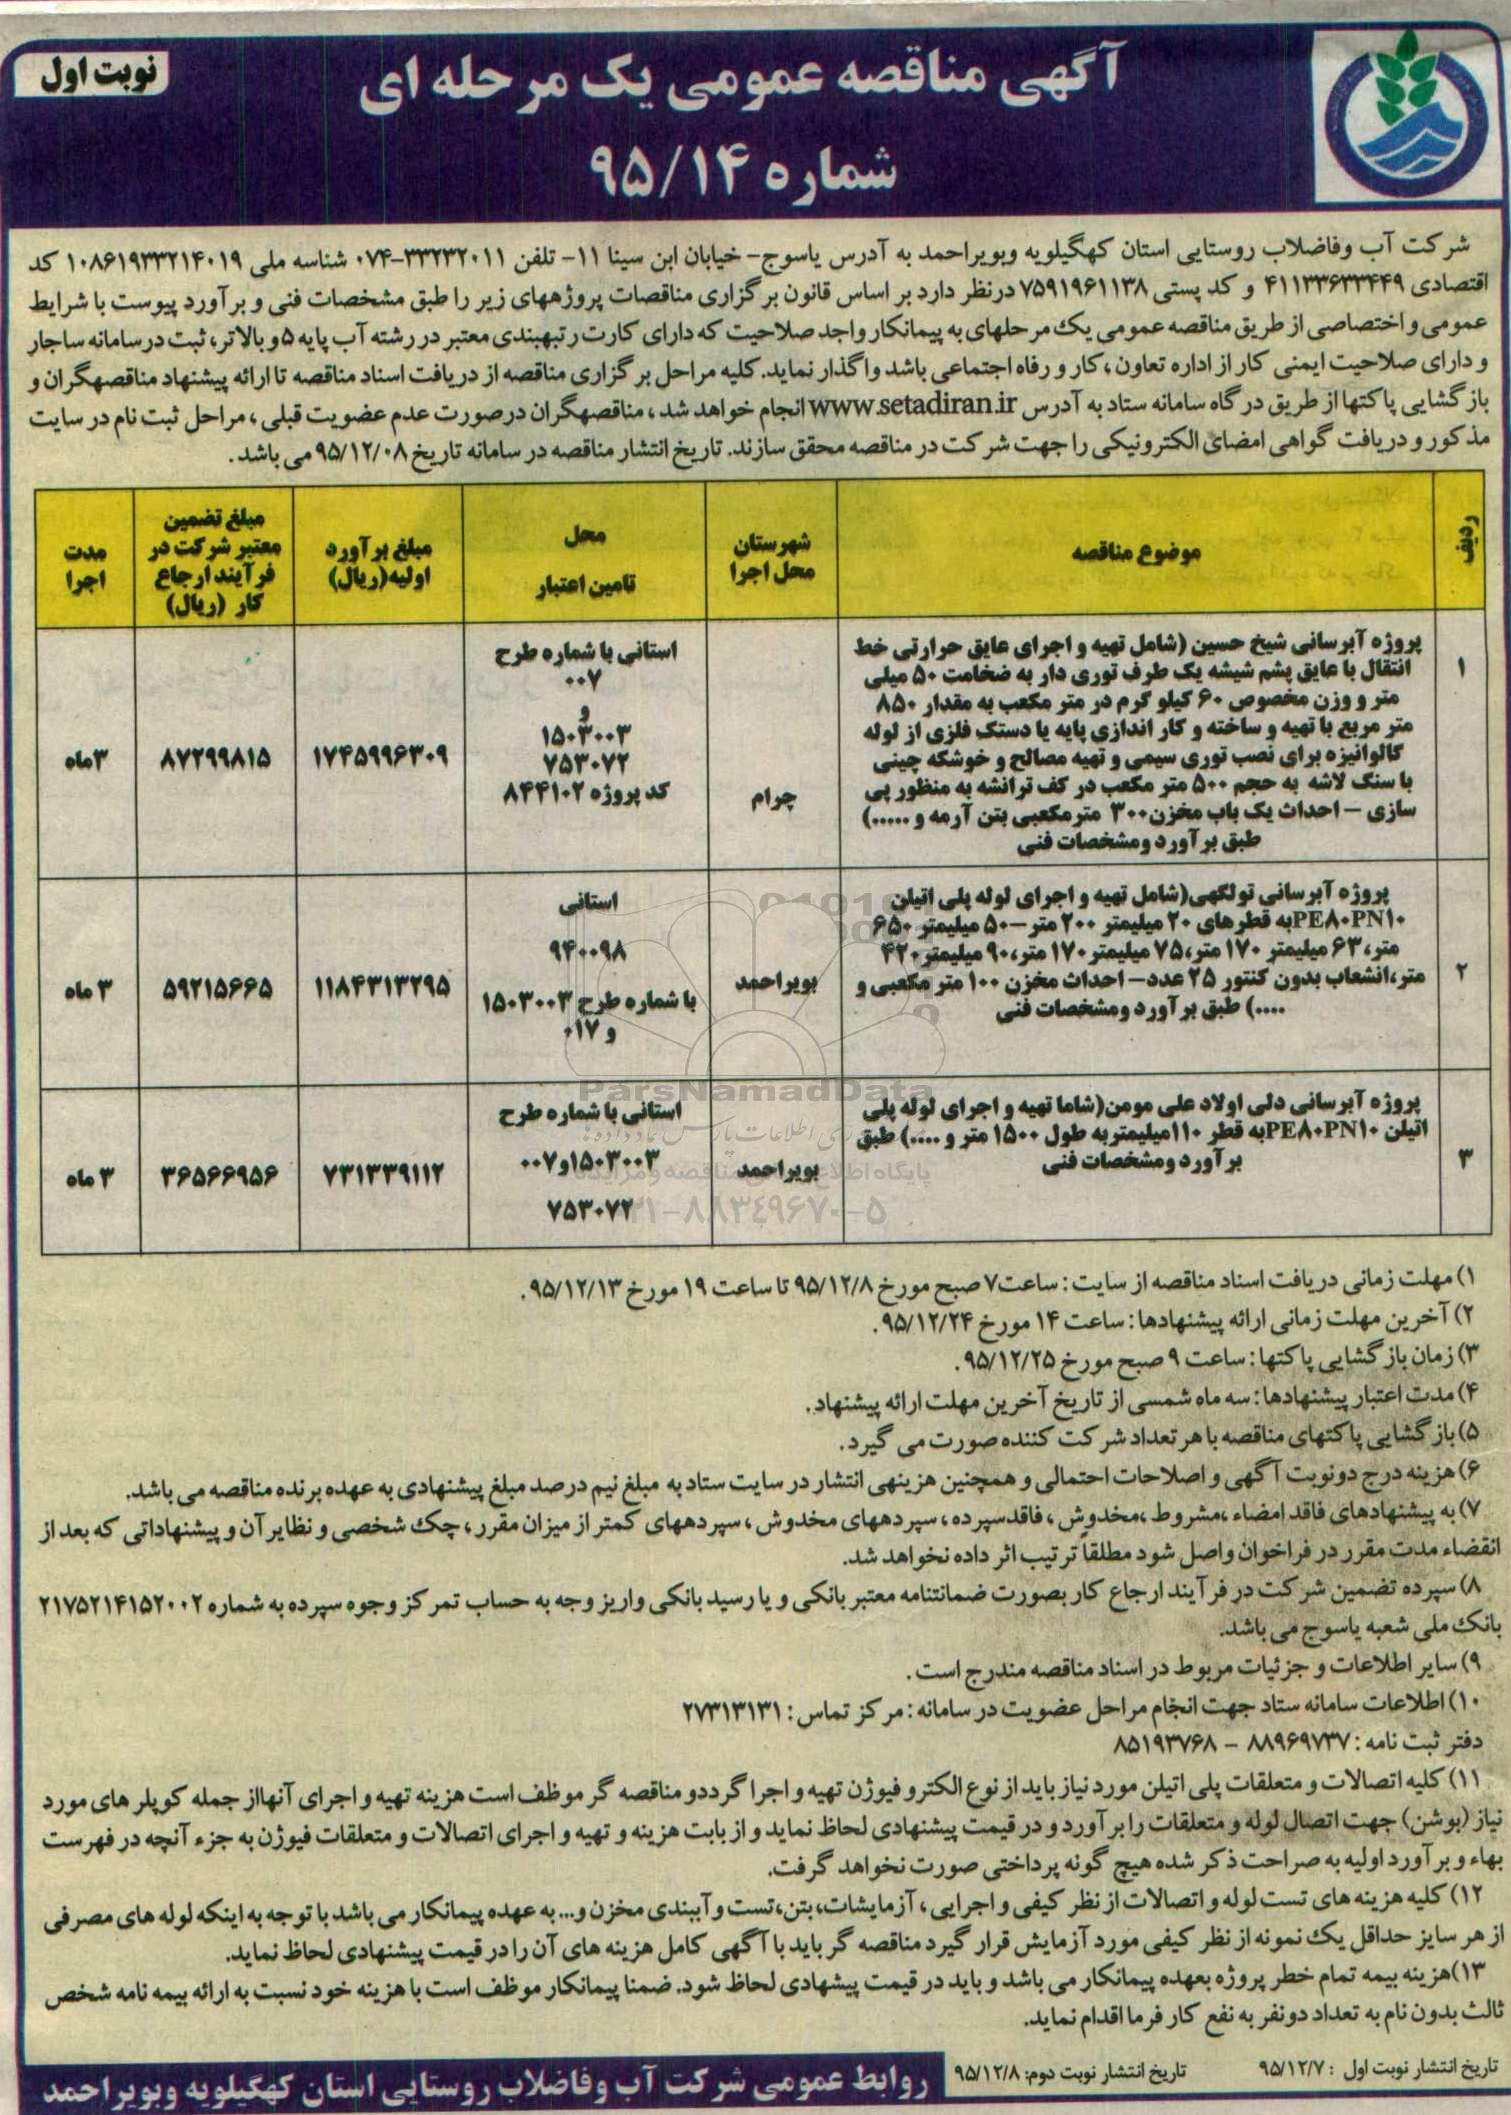 نوبت اول
آگهی مناقصه عمومی یک مرحله ای
شماره ۹۵/۱۴
شرکت آب وفاضلاب روستایی استان کهگیلویه وبویراحمد به آدرس یاسوج- خیابان ابن سینا ۱۱- تلفن ۳۳۲۳۲۰۱۱-۰۷۴ شناسه ملی ۱۰۸۶۱۹۳۳۲۱۴۰۱۹ کد
اقتصادی ۴۱۱۳۳۶۳۳۴۴۹ و کد پستی ۷۵۹۱۹۶۱۱۳۸ درنظر دارد بر اساس قانون برگزاری مناقصات پروژههای زیر را طبق مشخصات فنی و برآورد پیوست با شرایط
عمومی و اختصاصی از طریق مناقصه عمومی یک مرحلهای به پیمانکار واجد صلاحیت که دارای کارت رتبهبندی معتبر در رشته آب پایه ۵ و بالاتر، ثبت درسامانه ساجار
و دارای صلاحیت ایمنی کار از اداره تعاون ،کار و رفاه اجتماعی باشد واگذار نماید. کلیه مراحل برگزاری مناقصه از دریافت اسناد مناقصه تا ارائه پیشنهاد مناقصهگران و
بازگشایی پاکتها از طریق درگاه سامانه ستاد به آدرس www.setadiran.ir انجام خواهد شد ، مناقصهگران درصورت عدم عضویت قبلی ، مراحل ثبت نام در سایت
مذکور و دریافت گواهی امضای الکترونیکی را جهت شرکت در مناقصه محقق سازند. تاریخ انتشار مناقصه در سامانه تاریخ ۹۵/۱۲/۰۸ می باشد .
ردیف
موضوع مناقصه
شهرستان
محل اجرا
محل
تامین اعتبار
مبلغ برآورد
اولیه(ریال)
مبلغ تضمین
معتبر شرکت در
فرآیند ارجاع
کار (ریال)
مدت
اجرا
۱
پروژه آبرسانی شیخ حسین (شامل تهیه و اجرای عایق حرارتی خط
انتقال با عایق پشم شیشه یک طرف توری دار به ضخامت ۵۰ میلی
متر و وزن مخصوص ۶۰ کیلو گرم در متر مکعب به مقدار ۸۵۰
متر مربع با تهیه و ساخته و کار اندازی پایه یا دستک فلزی از لوله
گالوانیزه برای نصب توری سیمی و تهیه مصالح و خوشکه چینی
با سنگ لاشه به حجم ۵۰۰ متر مکعب در کف ترانشه به منظور پی
سازی - احداث یک باب مخزن ۳۰۰ مترمکعبی بتن آرمه و .....)
طبق برآورد ومشخصات فنی
چرام
استانی با شماره طرح
۰۰۷
و
۱۵۰۳۰۰۳
۷۵۳۰۷۲
کد پروژه ۸۴۴۱۰۲
۱۷۴۵۹۹۶۳۰۹
۸۷۲۹۹۸۱۵
۳ماه
۲
پروژه آبرسانی تولگهی(شامل تهیه و اجرای لوله پلی اتیلن
PE۸۰PN۱۰به قطرهای ۲۰ میلیمتر ۲۰۰ متر-۵۰ میلیمتر ۶۵۰
متر، ۶۳ میلیمتر ۱۷۰ متر، ۷۵ میلیمتر ۱۷۰ متر، ۹۰ میلیمتر ۴۲۰
متر،انشعاب بدون کنتور ۲۵ عدد- احداث مخزن ۱۰۰ متر مکعبی و
....) طبق برآورد ومشخصات فنی
بویراحمد
استانی
۹۴۰۰۹۸
با شماره طرح ۱۵۰۳۰۰۳
و ۰۱۷
۱۱۸۴۳۱۳۲۹۵
۵۹۲۱۵۶۶۵
۳ ماه
۳
پروژه آبرسانی دلی اولاد علی مومن(شاما تهیه و اجرای لوله پلی
اتیلن PE۸۰PN۱۰به قطر ۱۱۰میلیمتربه طول ۱۵۰۰ متر و ....) طبق
برآورد ومشخصات فنی
بویراحمد
استانی با شماره طرح
۱۵۰۳۰۰۳و۰۰۷
۷۵۳۰۷۲
۷۳۱۳۳۹۱۱۲
۳۶۵۶۶۹۵۶
۳ ماه
ParsNamadData
۰۲۱-۸۸۳۴۹۶۷۰-۵
۱) مهلت زمانی دریافت اسناد مناقصه از سایت : ساعت ۷ صبح مورخ ۹۵/۱۲/۸ تا ساعت ۱۹ مورخ ۹۵/۱۲/۱۳ .
۲) آخرین مهلت زمانی ارائه پیشنهادها : ساعت ۱۴ مورخ ۹۵/۱۲/۲۴ .
۳) زمان بازگشایی پاکتها : ساعت ۹ صبح مورخ ۹۵/۱۲/۲۵ .
۴) مدت اعتبار پیشنهادها : سه ماه شمسی از تاریخ آخرین مهلت ارائه پیشنهاد .
۵) بازگشایی پاکتهای مناقصه با هر تعداد شرکت کننده صورت می گیرد .
۶) هزینه درج دونوبت آگهی و اصلاحات احتمالی و همچنین هزینهی انتشار در سایت ستاد به مبلغ نیم درصد مبلغ پیشنهادی به عهده برنده مناقصه می باشد.
۷) به پیشنهادهای فاقد امضاء ،مشروط ،مخدوش ، فاقدسپرده ، سپردههای مخدوش ، سپردههای کمتر از میزان مقرر ، چک شخصی و نظایر آن و پیشنهاداتی که بعد از
انقضاء مدت مقرر در فراخوان واصل شود مطلقاً ترتیب اثر داده نخواهد شد.
۸) سپرده تضمین شرکت در فرآیند ارجاع کار بصورت ضمانتنامه معتبر بانکی و یا رسید بانکی واریز وجه به حساب تمرکز وجوه سپرده به شماره ۲۱۷۵۲۱۴۱۵۲۰۰۲
بانک ملی شعبه یاسوج می باشد.
۹) سایر اطلاعات و جزئیات مربوط در اسناد مناقصه مندرج است .
۱۰) اطلاعات سامانه ستاد جهت انجام مراحل عضویت در سامانه : مرکز تماس : ۲۷۳۱۳۱۳۱
دفتر ثبت نامه : ۸۸۹۶۹۷۳۷ - ۸۵۱۹۳۷۶۸
۱۱) کلیه اتصالات و متعلقات پلی اتیلن مورد نیاز باید از نوع الکترو فیوژن تهیه و اجرا گرددو مناقصه گر موظف است هزینه تهیه و اجرای آنهااز جمله کوپلر های مورد
نیاز (بوشن) جهت اتصال لوله و متعلقات را برآورد و در قیمت پیشنهادی لحاظ نماید و از بابت هزینه و تهیه و اجرای اتصالات و متعلقات فیوژن به جزء آنچه در فهرست
بهاء و برآورد اولیه به صراحت ذکر شده هیچ گونه پرداختی صورت نخواهد گرفت.
۱۲) کلیه هزینه های تست لوله و اتصالات از نظر کیفی و اجرایی ، آزمایشات،بتن،تست و آببندی مخزن و... به عهده پیمانکار می باشد با توجه به اینکه لوله های مصرفی
از هر سایز حداقل یک نمونه از نظر کیفی مورد آزمایش قرار گیرد مناقصه گر باید با آگهی کامل هزینه های آن را در قیمت پیشنهادی لحاظ نماید.
۱۳)هزینه بیمه تمام خطر پروژه بعهده پیمانکار می باشد و باید در قیمت پیشهادی لحاظ شود. ضمنا پیمانکار موظف است با هزینه خود نسبت به ارائه بیمه نامه شخص
ثالث بدون نام به تعداد دونفر به نفع کار فرما اقدام نماید.
تاریخ انتشار نوبت اول : ۹۵/۱۲/۷
تاریخ انتشار نوبت دوم: ۹۵/۱۲/۸
روابط عمومی شرکت آب وفاضلاب روستایی استان کهگیلویه وبویراحمد